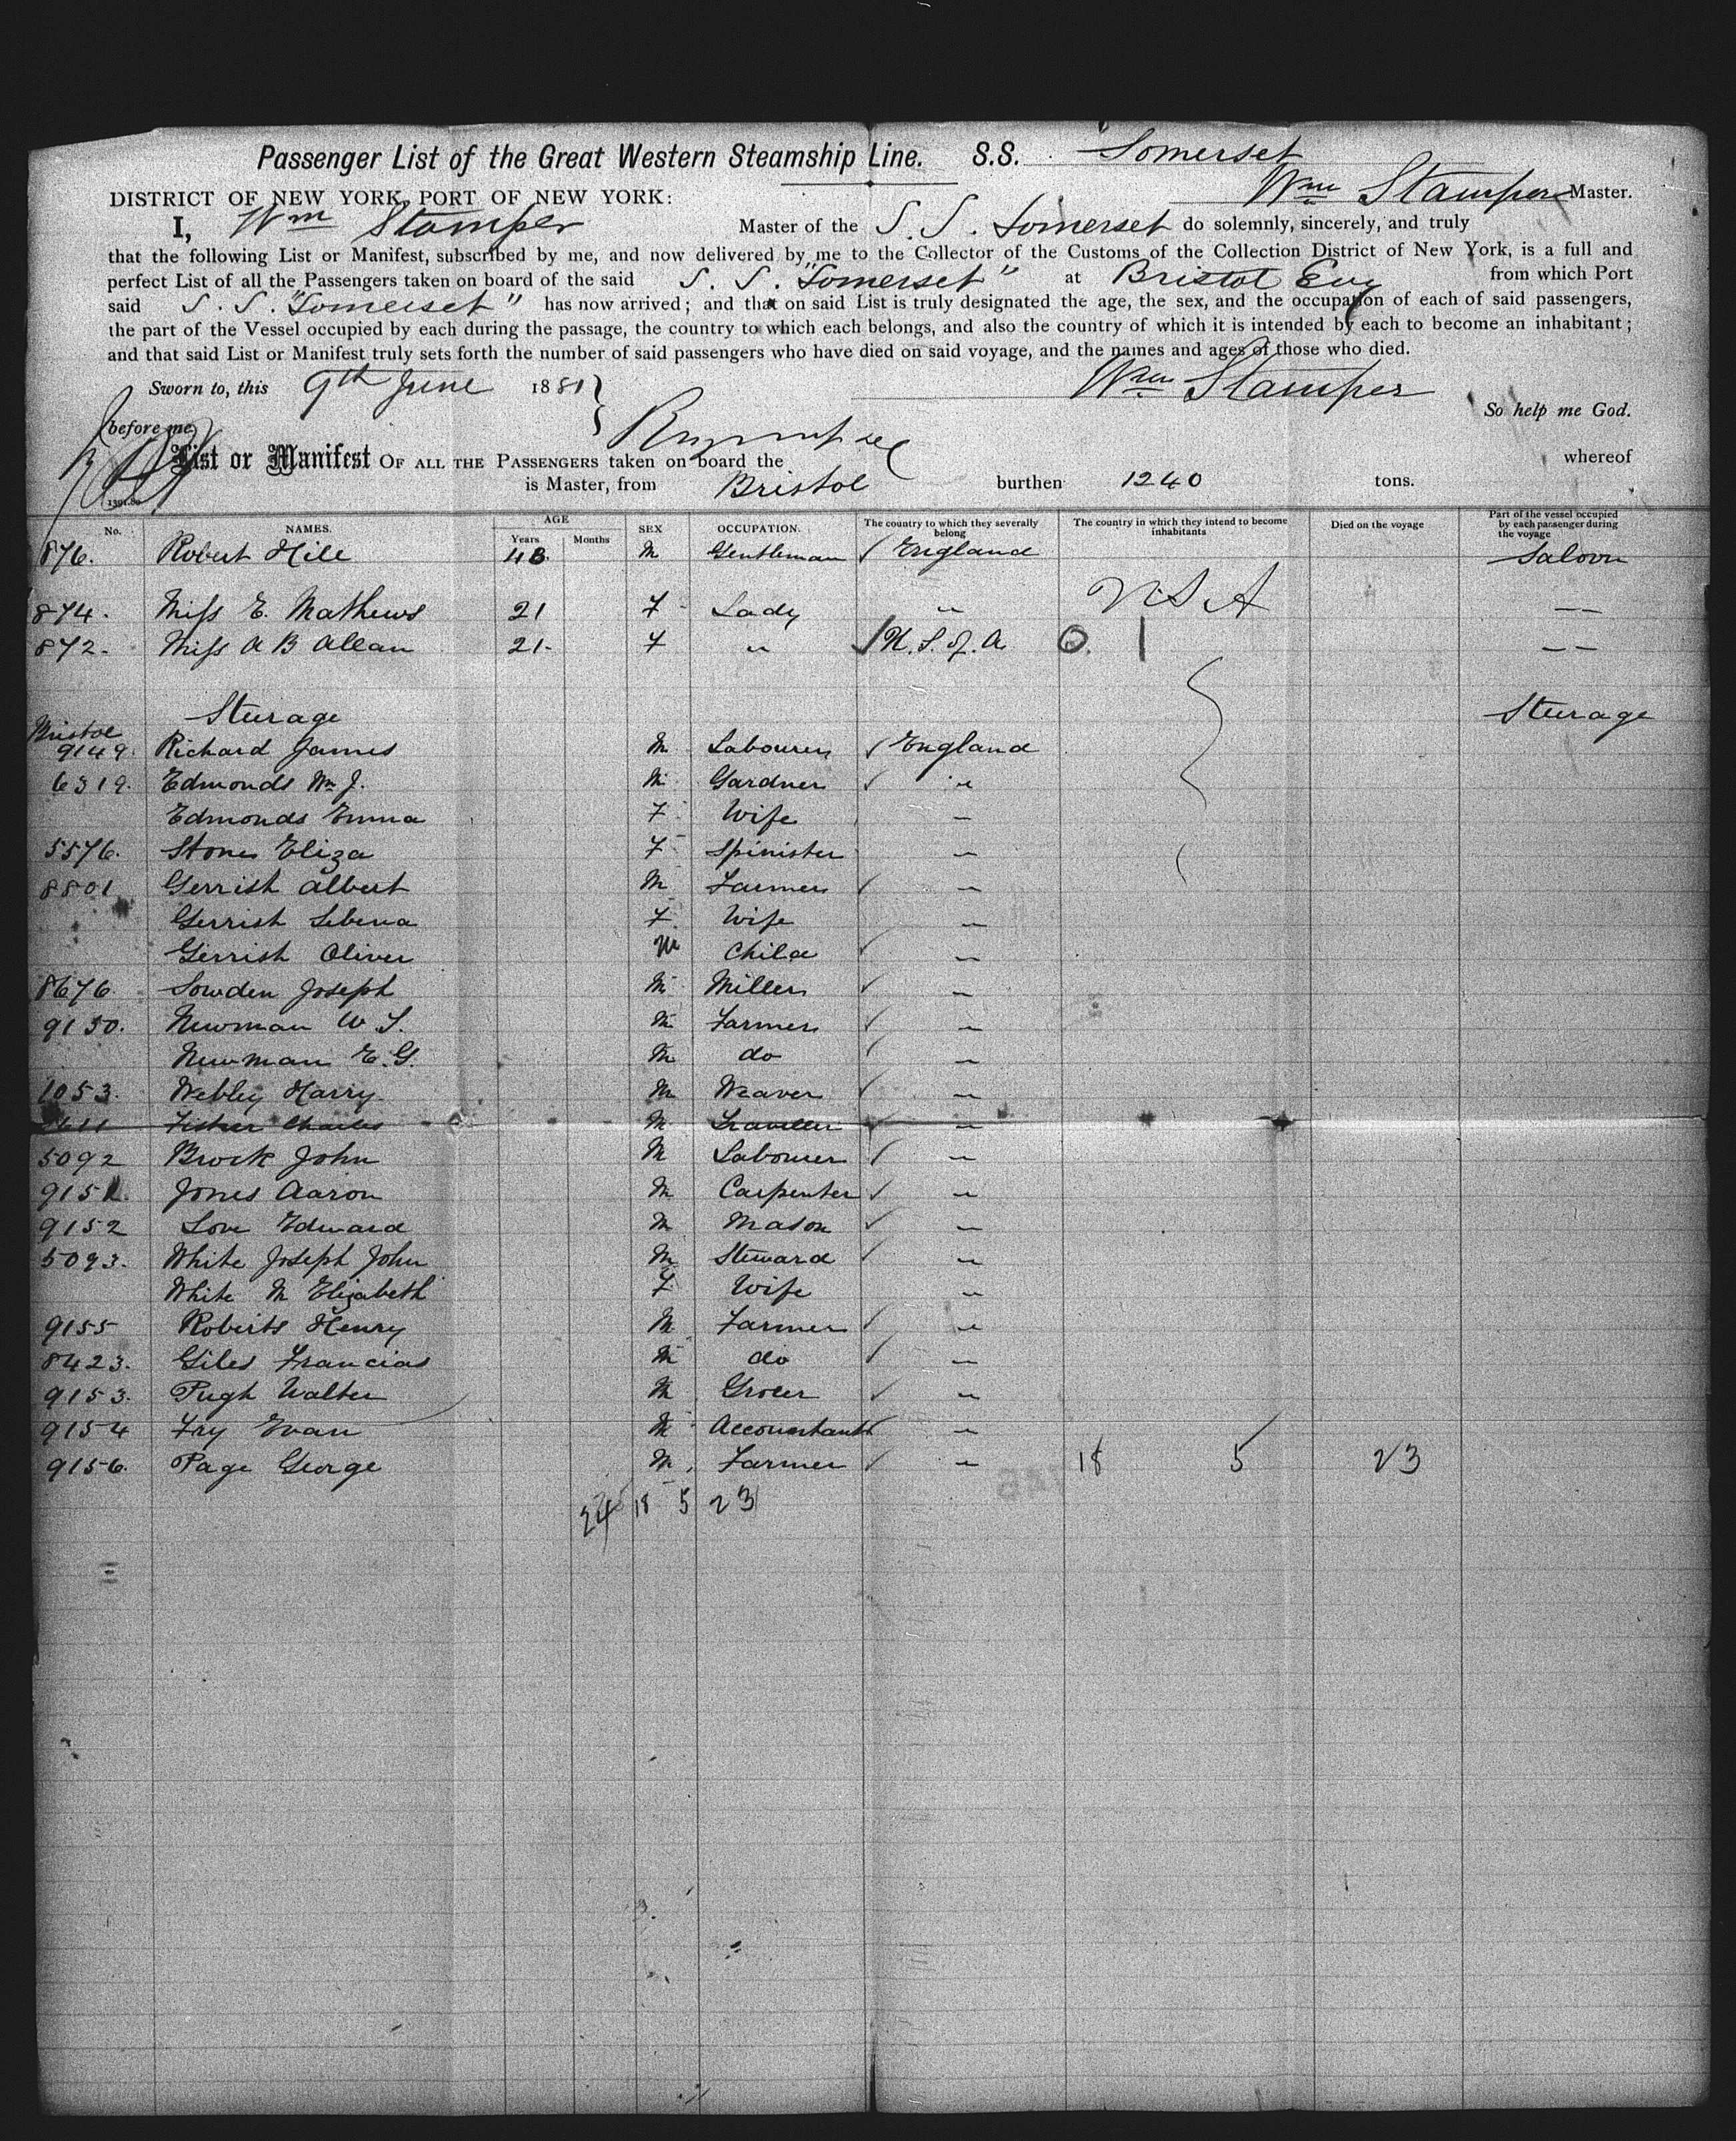 Passenger List of the Great Western Steamship Line. S.S. "Somerset
DISTRICT OF NEW YORK, PORT OF NEW YORK: Wm Stamper Master.
I, Wm Stamper Master of the S. S. Somerset do solemnly, sincerely, and truly
that the following List or Manifest, subscribed by me, and now delivered by me to the Collector of the Customs of the Collection District of New York, is a full and
perfect List of all the Passengers taken on board of the said S. S. "Somerset" at Bristol Eng from which Port
said S. S. "Somerset" has now arrived; and that on said List is truly designated the age, the sex, and the occupation of each of said passengers,
the part of the Vessel occupied by each during the passage, the country to which each belongs, and also the country of which it is intended by each to become an inhabitant;
and that said List or Manifest truly sets forth the number of said passengers who have died on said voyage, and the names and ages of those who died.
Sworn to, this 9th June 1881 Wm Stamper
So help me God.
before me
List or Manifest OF ALL THE PASSENGERS taken on board the whereof
is Master, from Bristol burthen 1240 tons.
No. NAMES. AGE Years Months SEX OCCUPATION. The country to which they severally belong The country in which they intend to become inhabitants Died on the voyage Part of the vessel occupied by each passenger during the voyage
876. Robert Hill 48. M Gentleman England Saloon
874. Miss E. Mathews 21 F Lady " U S A — —
872. Miss A B Allan 21. F " U. S. of A 0 1 — —
Steerage Steerage
Bristol
9149. Richard James M Labourer England
6319. Edmonds Wm J. M Gardner "
Edmonds Emma F Wife "
5576. Stones Eliza F Spinister "
8801 Gerrish Albert M Farmer "
Gerrish Sebena F Wife "
Gerrish Oliver M Child "
8676. Sowden Joseph M Miller "
9150. Newman W S. M Farmer "
Newman E. G. M do "
1053. Webley Harry M Weaver "
Fisher Charles M Traveller "
5092 Brock John M Labourer "
9151. Jones Aaron M Carpenter "
9152 Love Edward M Mason "
5093. White Joseph John M Steward "
White M Elizabeth F Wife "
9155 Roberts Henry M Farmer "
8423. Giles Francias M do "
9153. Pugh Walter M Grocer "
9154 Fry Evan M Accountant "
9156. Page George M Farmer " 18 5 23
24 18 5 23